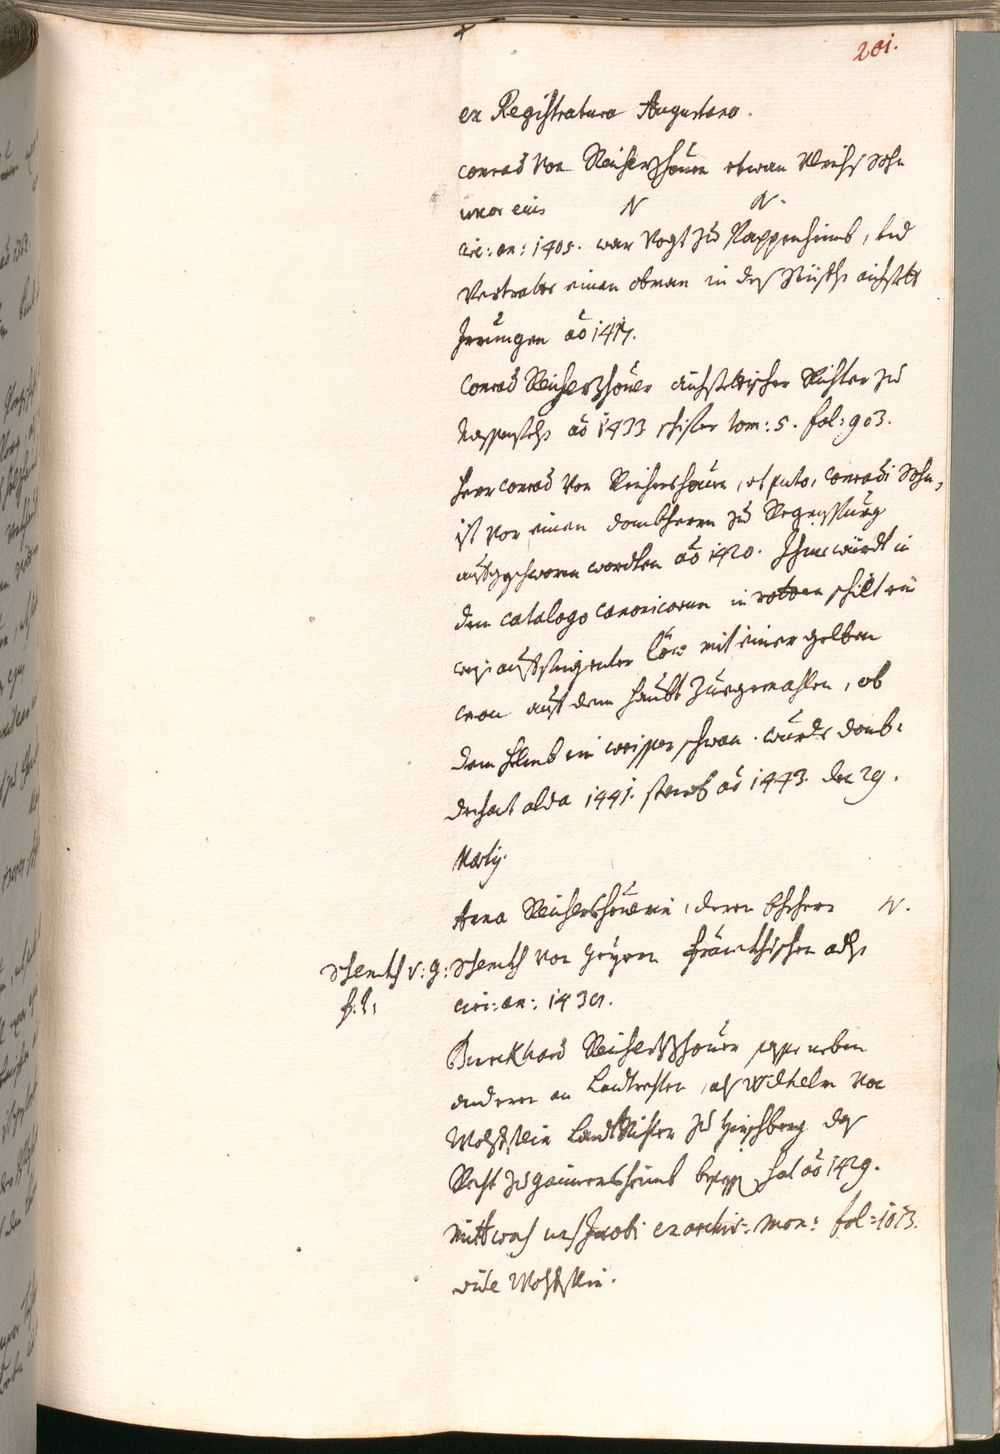 201.
ex Registratura Augustana.
Conrad Von Reicherzhouen etwan Ulrichs Sohn
uxor eius N N.
circ: an: 1405. war Vogt zu Pappenheimb, und
Vertratte einen obman in des Stüffts aichstett
Irrungen ao 1417.
Conrad Reicherzhouer aichstettischer Richter zu
ao 1433 tom: 5. fol: 903.
Herr Conrad Von Reichershouen, ut puto, Conradi Sohn,
ist vor einen dombherrn zu Regenspurg
aufgeschworen wordten ao 1420. Ihme würdt in
dem catalogo Canonicorum in rothen schilt ein
weis aufsteigenter löw mit einer gelben
cron auf dem haubt zuegemahlen, ob
dem helmb ein weisser schwan. wurde domb-
dechant alda 1441. starb ao 1443. den 29.
Martij.
Anna Reichershouerin, deren Eheherr N.
Schenckh v: g: Schenckh von Geyrn fränckhischen adls
f: l: circ: an: 1430.
Burckhard Reicherzhouer neben
anderen an Landtrechten, als Wilhelm Von
Wolfstein LandtRichter zu Hirschberg das
Recht zu Gaimersheimb besessen hat ao 1429.
Mittwoch nach Jacobi ex archiv: Mon: fol: 1013.
vide Wolfstein.